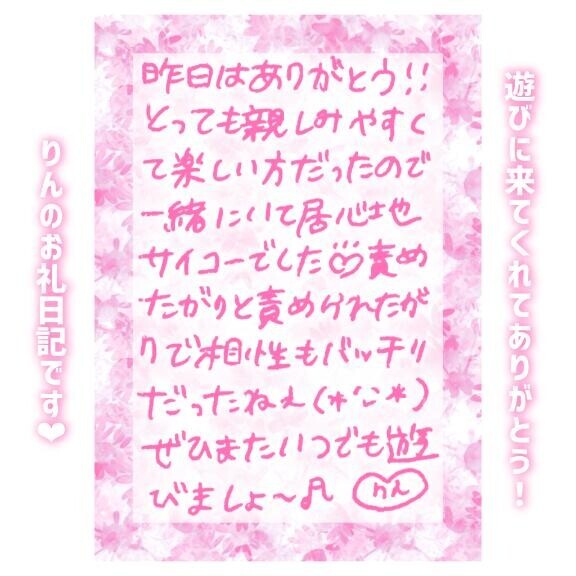 遊びに来てくれてありがとう!
昨日はありがとう!!
とっても親しみやすく
て楽しい方だったので
一緒にいて居心地
サイコーでした♡責め
たがりと責められたが
りで相性もバッチリ
だったねぇ(*'-'*)
ぜひまたいつでも遊
びましょ〜♬ りん
りんのお礼日記です♥